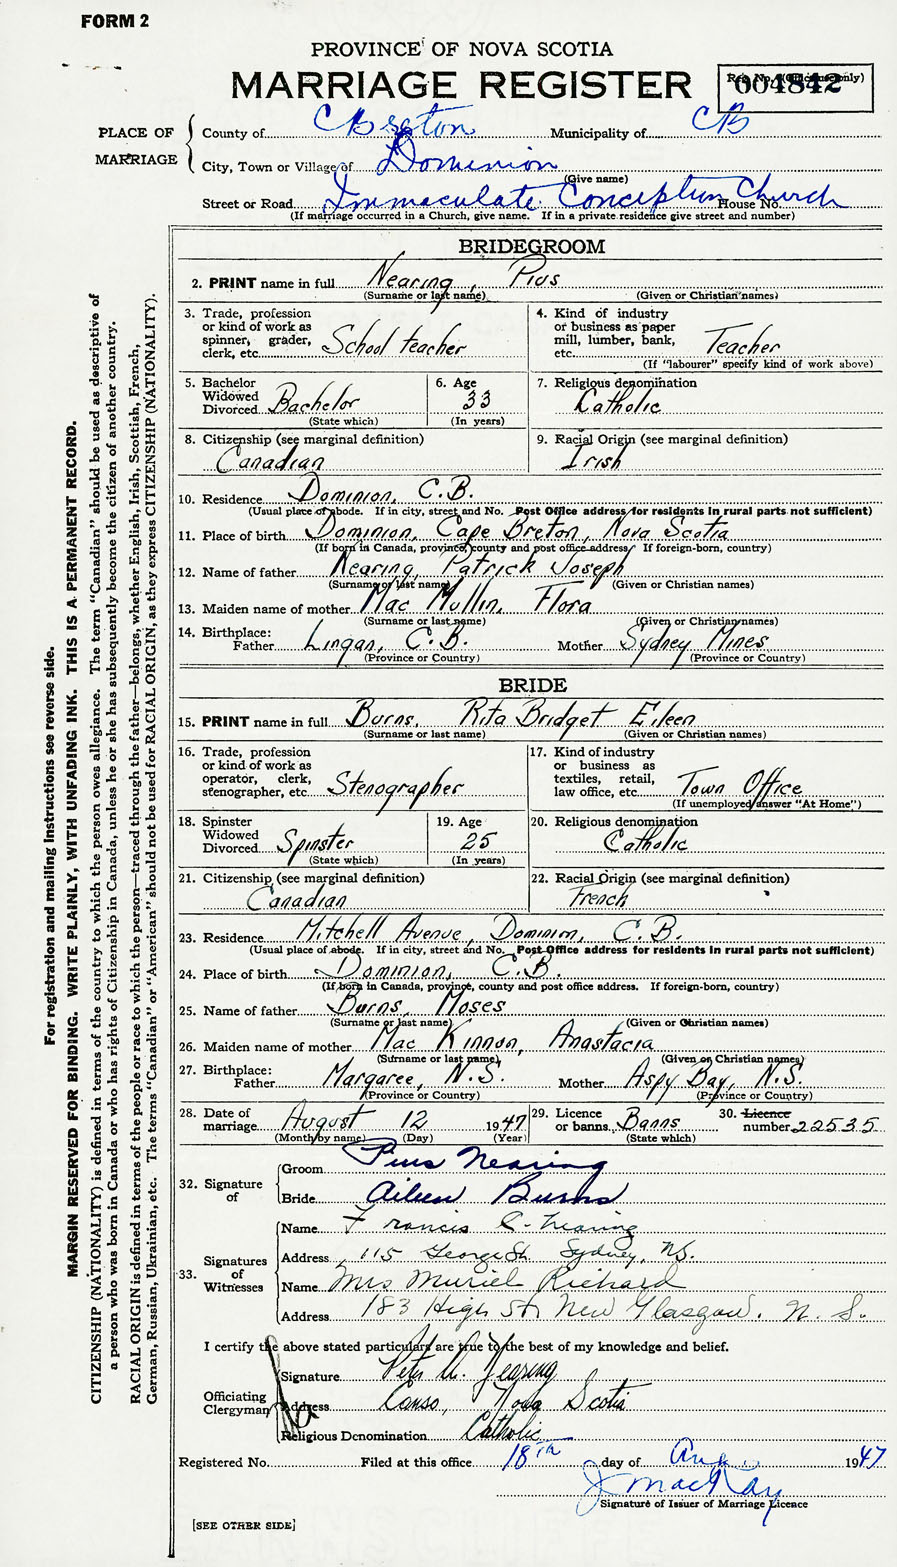 FORM 2
PROVINCE OF NOVA SCOTIA
MARRIAGE REGISTER
Reg. No. (Office use only)
004842
PLACE OF MARRIAGE
County of C Breton Municipality of CB
City, Town or Village of Dominion
(Give name)
Street or Road Immaculate Conception Church House No.
(If marriage occurred in a Church, give name. If in a private residence give street and number)
BRIDEGROOM
2. PRINT name in full Nearing, Pius
(Surname or last name) (Given or Christian names)
3. Trade, profession or kind of work as spinner, grader, clerk, etc. School teacher
4. Kind of industry or business as paper mill, lumber, bank, etc. Teacher
(If "labourer" specify kind of work above)
5. Bachelor Widowed Divorced Bachelor
(State which)
6. Age 33
(In years)
7. Religious denomination
Catholic
8. Citizenship (see marginal definition)
Canadian
9. Racial Origin (see marginal definition)
Irish
10. Residence Dominion, C.B.
(Usual place of abode. If in city, street and No. Post Office address for residents in rural parts not sufficient)
11. Place of birth Dominion, Cape Breton, Nova Scotia
(If born in Canada, province, county and post office address. If foreign-born, country)
12. Name of father Nearing, Patrick Joseph
(Surname or last name) (Given or Christian names)
13. Maiden name of mother Mac Mullin, Flora
(Surname or last name) (Given or Christian names)
14. Birthplace: Father Lingan, C.B. Mother Sydney Mines
(Province or Country) (Province or Country)
BRIDE
15. PRINT name in full Burns, Rita Bridget Eileen
(Surname or last name) (Given or Christian names)
16. Trade, profession or kind of work as operator, clerk, stenographer, etc. Stenographer
17. Kind of industry or business as textiles, retail, law office, etc. Town Office
(If unemployed answer "At Home")
18. Spinster Widowed Divorced Spinster
(State which)
19. Age 25
(In years)
20. Religious denomination
Catholic
21. Citizenship (see marginal definition)
Canadian
22. Racial Origin (see marginal definition)
French
23. Residence Mitchell Avenue, Dominion, C.B.
(Usual place of abode. If in city, street and No. Post Office address for residents in rural parts not sufficient)
24. Place of birth Dominion, C.B.
(If born in Canada, province, county and post office address. If foreign-born, country)
25. Name of father Burns, Moses
(Surname or last name) (Given or Christian names)
26. Maiden name of mother Mac Kinnon, Anastacia
(Surname or last name) (Given or Christian names)
27. Birthplace: Father Margaree, N.S. Mother Aspy Bay, N.S.
(Province or Country) (Province or Country)
28. Date of marriage August 12 1947
(Month by name) (Day) (Year)
29. Licence or banns Banns
(State which)
30. Licence number 22535
32. Signature of
Groom Pius Nearing
Bride Aileen Burns
33. Signatures of Witnesses
Name Francis C. Nearing
Address 115 George St. Sydney, N.S.
Name Mrs Muriel Richard
Address 183 High St. New Glasgow. N.S.
I certify the above stated particulars are true to the best of my knowledge and belief.
Officiating Clergyman
Signature Peter A. Nearing
Address Canso, Nova Scotia
Religious Denomination Catholic
Registered No. Filed at this office 18th day of Aug. 1947
J MacKay
Signature of Issuer of Marriage Licence
[SEE OTHER SIDE]
For registration and mailing instructions see reverse side.
MARGIN RESERVED FOR BINDING. WRITE PLAINLY, WITH UNFADING INK. THIS IS A PERMANENT RECORD.
CITIZENSHIP (NATIONALITY) is defined in terms of the country to which the person owes allegiance. The term "Canadian" should be used as descriptive of
a person who was born in Canada or who has rights of Citizenship in Canada, unless he or she has subsequently become the citizen of another country.
RACIAL ORIGIN is defined in terms of the people or race to which the person—traced through the father—belongs, whether English, Irish, Scottish, French,
German, Russian, Ukrainian, etc. The terms "Canadian" or "American" should not be used for RACIAL ORIGIN, as they express CITIZENSHIP (NATIONALITY).